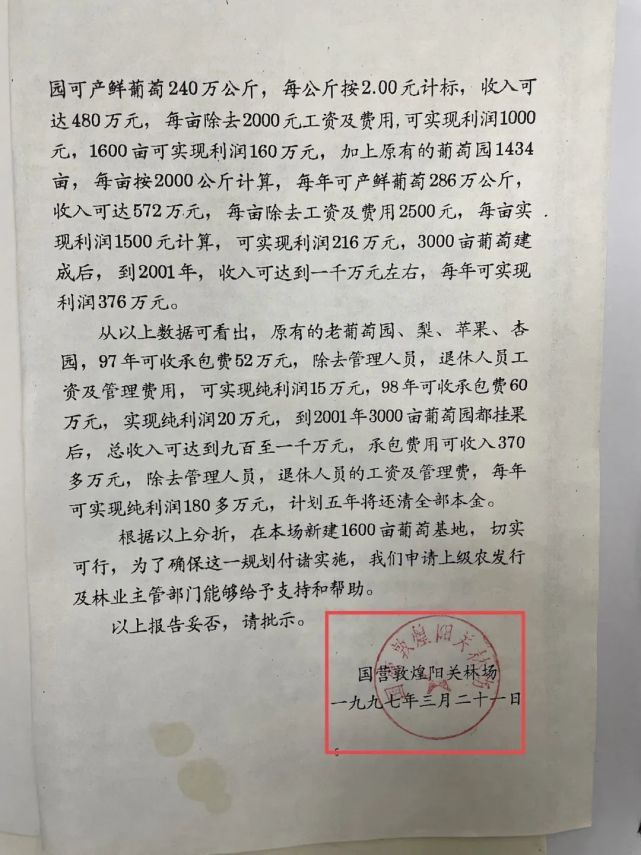 园可产鲜葡萄240万公斤，每公斤按2.00元计标，收入可
达480万元，每亩除去2000元工资及费用,可实现利润1000
元，1600亩可实现利润160万元，加上原有的葡萄园1434
亩，每亩按2000公斤计算，每年可产鲜葡萄286万公斤，
收入可达572万元，每亩除去工资及费用2500元，每亩实
现利润1500元计算，可实现利润216万元，3000亩葡萄建
成后，到2001年，收入可达到一千万元左右，每年可实现
利润376万元。
从以上数据可看出，原有的老葡萄园、梨、苹果、杏
园，97年可收承包费52万元，除去管理人员，退休人员工
资及管理费用，可实现纯利润15万元，98年可收承包费60
万元，实现纯利润20万元，到2001年3000亩葡萄园都挂果
后，总收入可达到九百至一千万元，承包费用可收入370
多万元，除去管理人员，退休人员的工资及管理费，每年
可实现纯利润180多万元，计划五年将还清全部本金。
根据以上分折，在本场新建1600亩葡萄基地，切实
可行，为了确保这一规划付诸实施，我们申请上级农发行
及林业主管部门能够给予支持和帮助。
以上报告妥否，请批示。
国营敦煌阳关林场
国营敦煌阳关林场
一九九七年三月二十一日